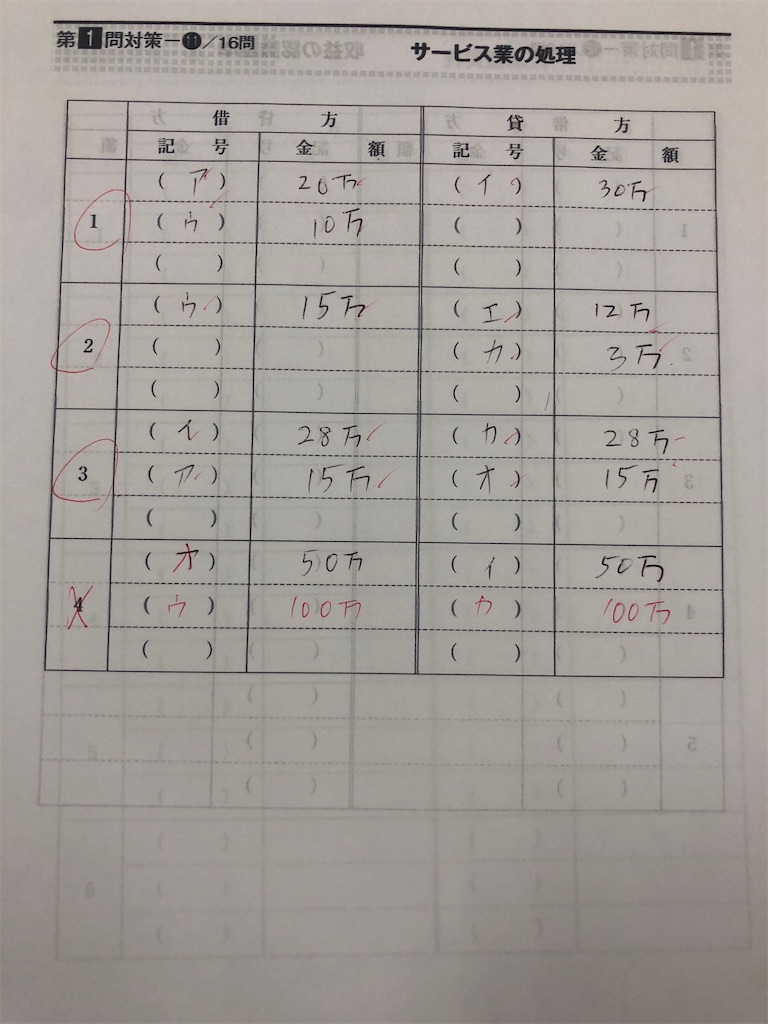 第1問対策−⓫／16問
サービス業の処理
借 方 貸 方
記 号 金 額 記 号 金 額
1 (ア) 20万 (イ) 30万
(ウ) 10万 ( )
( ) ( )
2 (ウ) 15万 (エ) 12万
( ) (カ) 3万
( ) ( )
3 (イ) 28万 (カ) 28万
(ア) 15万 (オ) 15万
( ) ( )
4 (オ) 50万 (イ) 50万
(ウ) 100万 (カ) 100万
( ) ( )